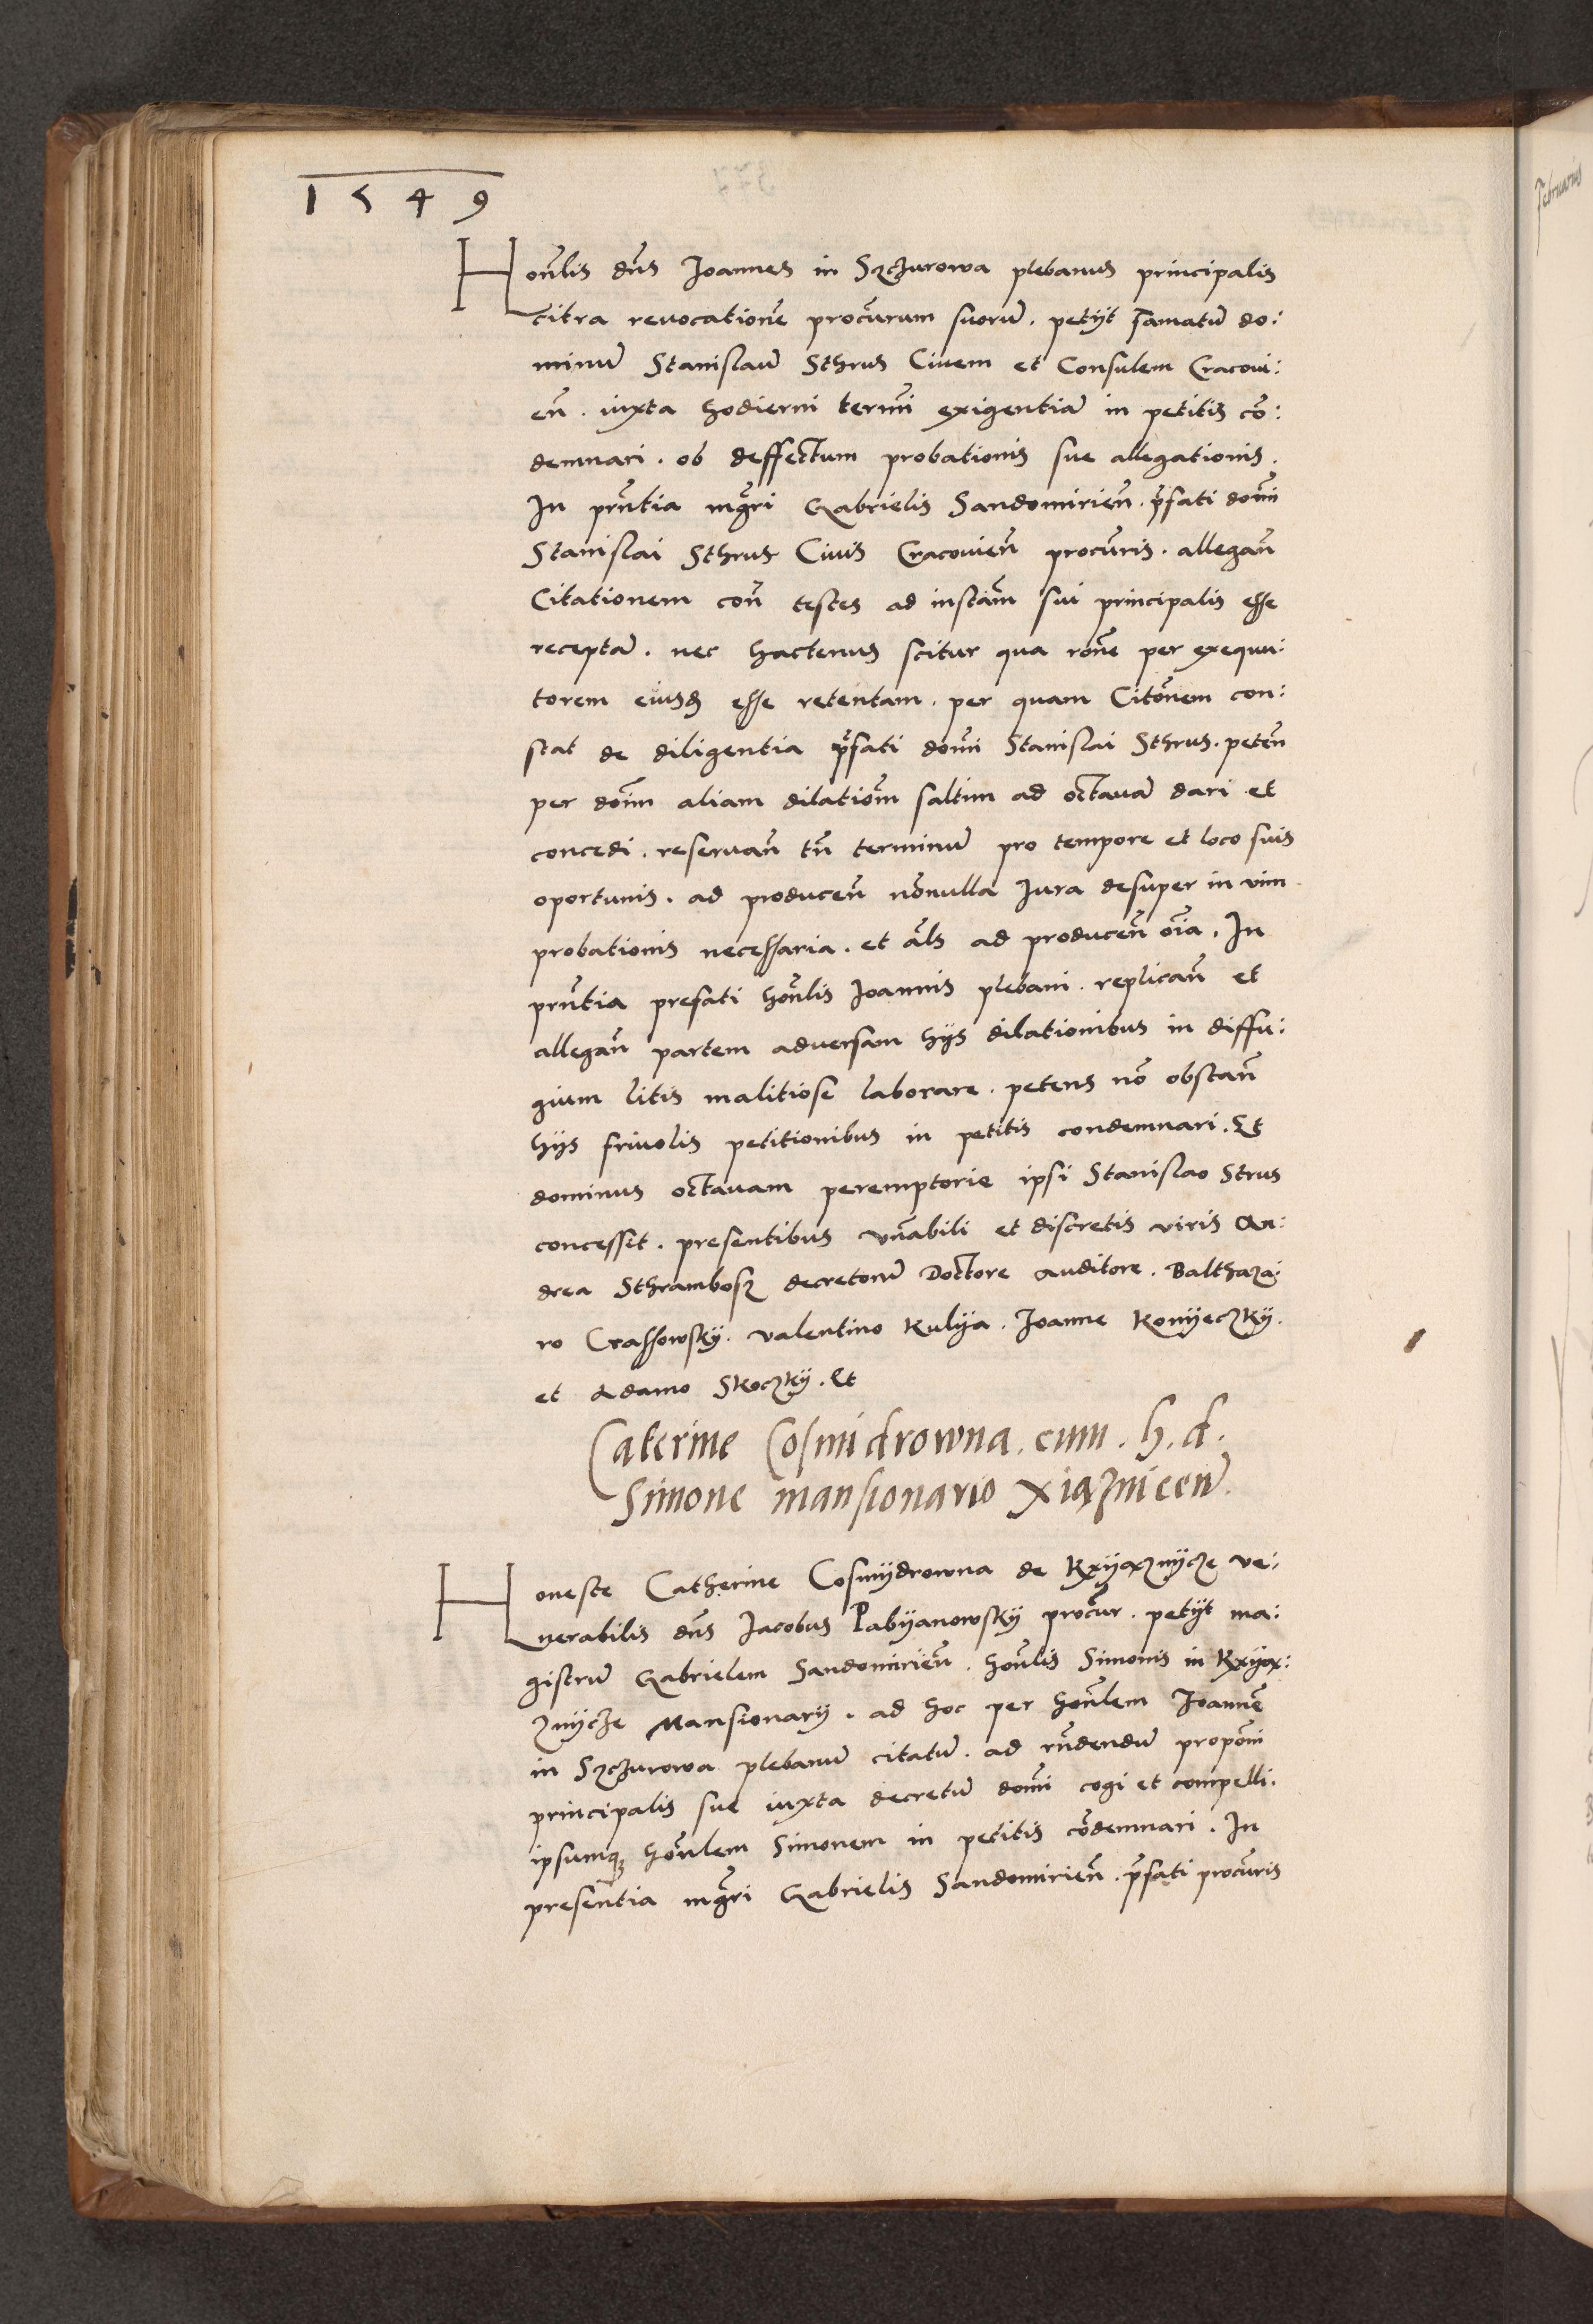 1549
Honlis dns Joannes in Szczurowa plebanus principalis
citra revocatione procurum suoru. petijt Famatu do:
minu Stanislau Sthrus Civem et Consulem Cracovi:
en. iuxta hodierni termi exigentia in petitis co:
demnari. ob deffectum probationis sue allegationis.
In prntia mgri Gabrielis Sandomirien. pfati domi
Stanislai Sthrus Civis Cracovien procuris. allegan
Citationem con testes ad instam sui principalis esse
recepta. nec hactenus scitur qua rone per exequu:
torem eiusd esse retentam. per quam Citonem con:
stat de diligentia pfati domi Stanislai Sthrus. peten
per doim aliam dilationm saltim ad octava dari et
concedi. reservan tn terminu pro tempore et loco suis
oportunis. ad producen nonnulla Jura desuper in vim
probationis necessaria. et als ad producen oia. In
prntia prefati honlis Joannis plebani. replican et
allegan partem adversam hijs dilationibus in diffu:
gium litis malitiose laborare. petens no obstan
hijs frivolis petitionibus in petitis condemnari. Et
dominus octavam peremptorie ipsi Stanislao Strus
concessit. presentibus vnabili et discretis viris An:
drea Sthrambosz decretoru Doctore Auditore. Balthaza:
ro Crassowsky. Valentino Kulija. Joanne Konijeczky.
et Adamo Skoczkij. Et
Caterine Cosmidrowna. cum. h. d.
Simone mansionario Xiąznicen.
Honeste Catherine Cosmijdrowna de Kxijaznijcze ve:
nerabilis dns Jacobus Pabijanowsky procur. petijt ma:
gistru Gabrielem Sandomirien. honlis Simonis in Kxijąx:
znijcze Mansionarij. ad hoc per honlem Joanne
in Szczurowa plebanu citatu. ad rndendu proponi
principalis sue iuxta decretu domi cogi et compelli.
ipsumq honlem Simonem in petitis codemnari. In
presentia mgri Gabrielis Sandomirien. pfati procuris
Februarius